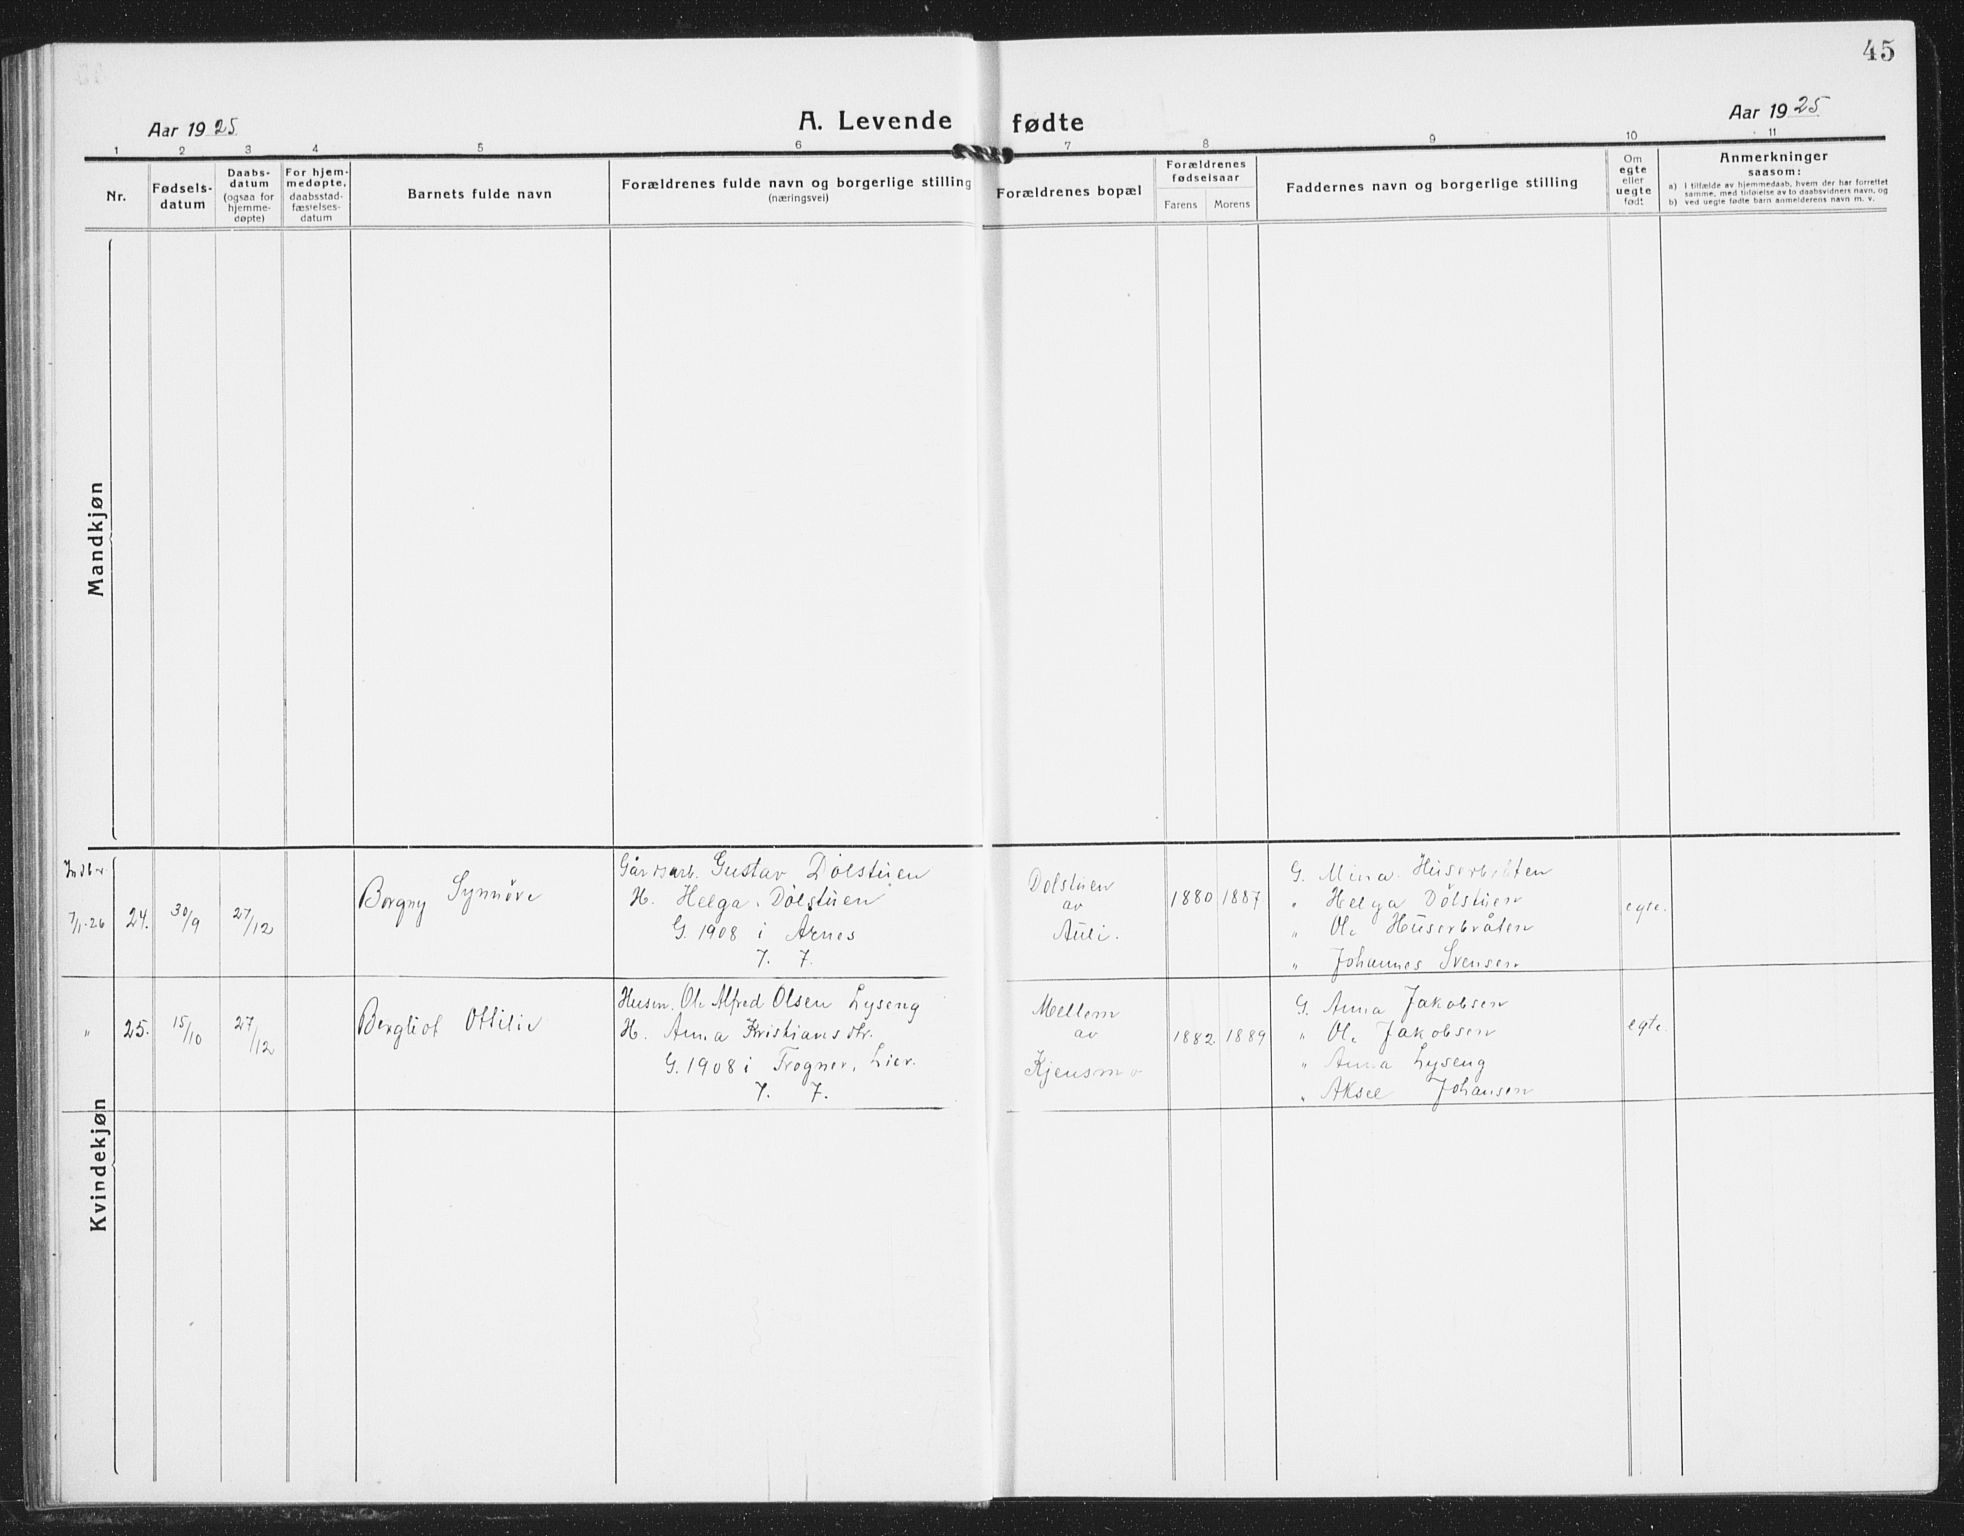 45
Aar 1925
A. Levende fødte
Aar 1925
1 2 3 4 5 6 7 8 9 10 11
Nr.
Fødsels-
datum
Daabs-
datum
(ogsaa for
hjemme-
døpte)
For hjem-
medøpte,
daabsstad-
fæstelses-
datum
Barnets fulde navn
Forældrenes fulde navn og borgerlige stilling
(næringsvei)
Forældrenes bopæl
Forældrenes
fødselsaar
Farens Morens
Faddernes navn og borgerlige stilling
Om
egte
eller
uegte
født
Anmerkninger
saasom:
a) I tilfælde av hjemmedaab, hvem der har forrettet
samme, med tilføielse av to daabsvidners navn, og
b) ved uegte fødte barn anmelderens navn m. v.
Mandkjøn
Kvindekjøn
7/1-26
24.
30/9
27/12
Borgny Synnöve
Gårdsarb. Gustav Dölstuen
H. Helga Dölstuen
G. 1908 i Arnes
7. 7.
Dolstuen
av
Auli.
1880 1887
G. Mina Huserbråten
" Helga Dölstuen
" Ole Huserbråten
" Johannes Svensen
egte.
"
25.
15/10
27/12
Bergliot Ottilie
Husm. Ole Alfred Olsen Lyseng
H. Anna Kristiansdtr.
G. 1908 i Frogner, Lier.
7. 7.
Mellem
av
Kjensmo
1882 1889
G. Anna Jakobsen
" Ole Jakobsen
" Anna Lyseng
" Aksel Johansen
egte.